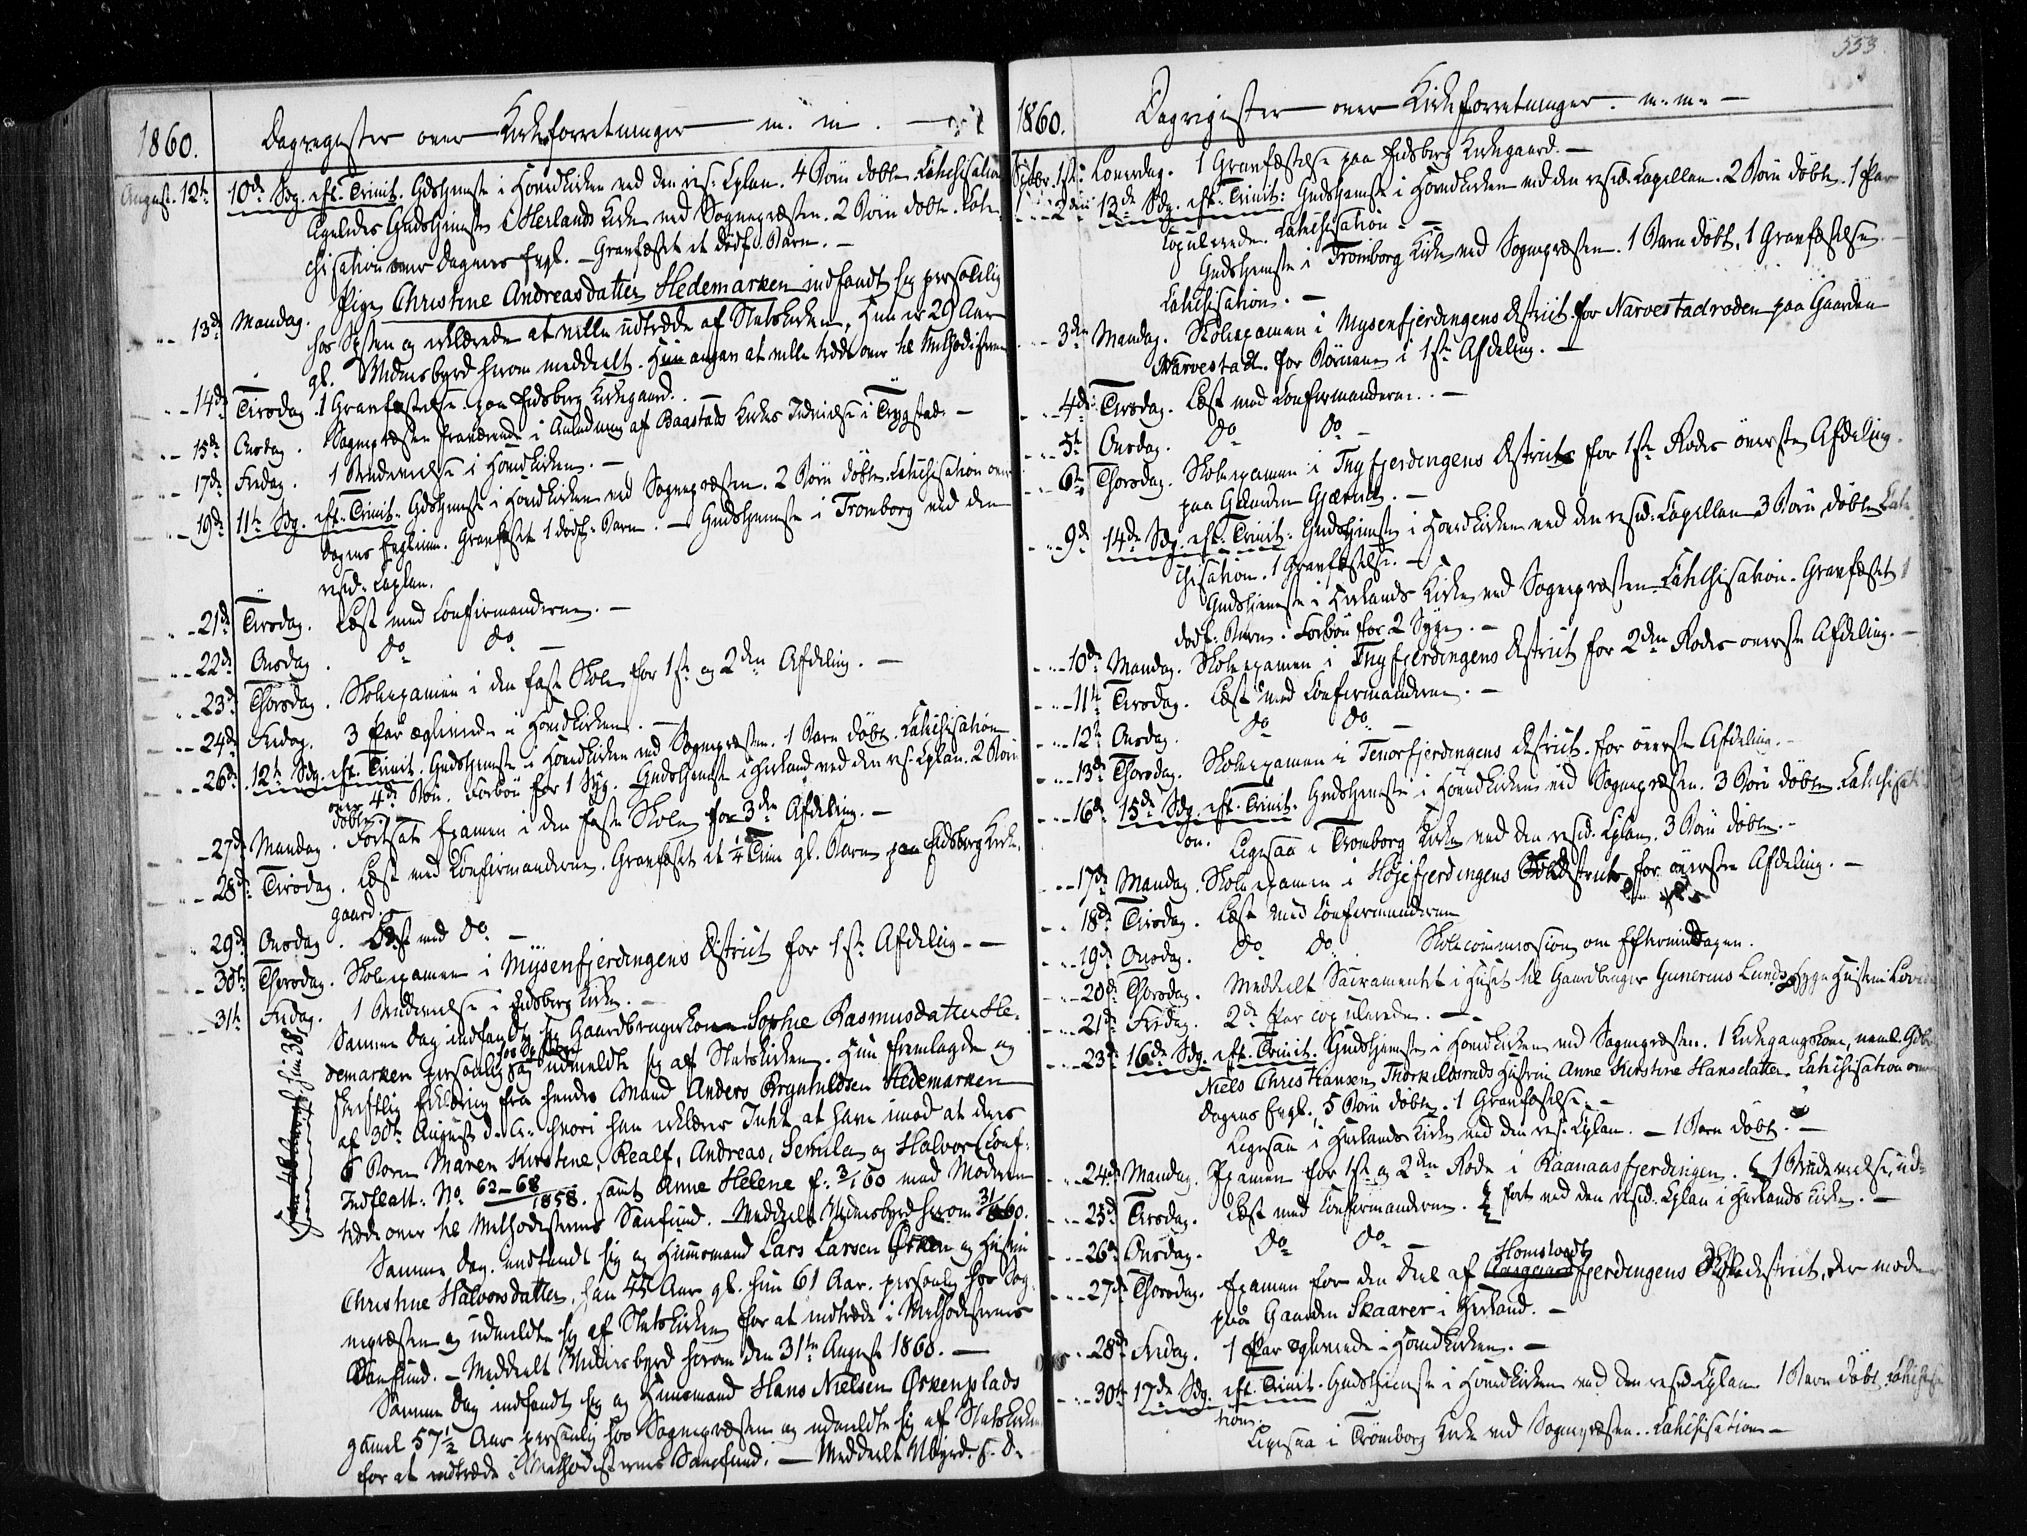 1860. Dagregister over Kirkeforretninger m. m. —
August. 12te 10de Sdg. eft. Trinit. Gdstjeneste i Hovedkirken ved den res: Cplan. 4 Børn døbte. Catechisation
Ligeledes Gudstjeneste i Herlands Kirke ved Sognepræsten. 2 Børn døbte. Cate-
chisation over Dagens Evgl. — Gravfæstet et dødf. Barn. —
13de Mandag. Pige Christine Andreasdatter Hedemarken indfandt sig personlig
hos Spsten og erklærede at ville udtræde af Statskirken. Hun er 29 Aar
gl. Vidnesbyrd herom meddeelt. Hun angav at ville træde over til Methodisterne
14de Tirsdag. 1 Gravfæstelse paa Eidsberg Kirkegaard. —
15de Onsdag. Sognepræsten fraværende i Anledning af Baastads Kirkes Indvielse i Trygstad. —
17de Fredag. 1 Brudevielse i Hovedkirken. —
19de 11te Sdg. eft. Trinit. Gdstjeneste i Hovedkirken ved Sognepræsten. 2 Børn døbte. Catechisation over
Dagens Evglium. Gravfæstet 1 dødf. Barn. — Gudstjeneste i Tromborg ved den
resid. Caplan.
21de Tirsdag. Læst med Confirmanderne. —
22de Onsdag. do do —
23de Thorsdag. Skoleexamen i den faste Skole for 1ste og 2den Afdeling. —
24de Fredag. 3 Par ægteviede i Hovedkirken. —
26de 12te Sdg. eft. Trinit. Gudstjeneste i Hovedkirken ved Sognepræsten. 1 Barn døbt. Catechisation
over 4de Bøn. Forbøn for 1 Syg. Gudstjeneste i Herland ved den res: Cplan. 2 Børn
døbte. —
27de Mandag. Fortsat Examen i den faste Skole for 3de Afdeling. —
28de Tirsdag. Læst med Confirmanderne. Gravfæstet et 1/4 Time gl. Barn paa Eidsberg Kirke-
gaard. —
29de Onsdag. Læst med do. —
30te Thorsdag. Skoleexamen i Mysenfjerdingens District for 1ste Afdeling. —
31te Fredag. 1 Brudevielse i Eidsberg Kirke. —
Samme Dag indfandt sig Gaardbrugerkone Sophie Rasmusdatter He-
demarken personlig og udmeldte sig af Statskirken. Hun fremlagde og
skriftlig Erklæring fra hendes Mand Anders Brynhildsen Hedemarken
af 30te August d. A. hvori han erklærer Intet at have imod at deres
6 Børn Maren Kirstine, Realf, Andreas, Semila og Halvor (Conf.
Indflatt: No. 62-68 1858. samt Anne Helene f. 3/1 60 med Moderen
træde over til Methodisternes Samfund. — Meddeelt Vidnesbyrd herom 31/8 60.
Samme Dag indfandt sig og Huusmand Lars Larsen Ørken og Hustru
Christine Halvorsdatter, han 45 Aar gl. hun 61 Aar. personlig hos Sog-
nepræsten og udmeldte sig af Statskirken for at indtræde i Methodisternes
Samfund. — Meddeelt Vidnesbyrd herom den 31te August 1860. —
Samme Dag indfandt sig og Huusmand Hans Nielsen Ørkenplads
gammel 57 1/2 Aar personlig hos Sognepræsten og udmeldte sig af Statskirken
for at indtræde i Methodisternes Samfund. — Meddeelt Vbyrd. s. D.
553
1860. Dagregister over Kirkeforretninger. m. m. —
Septbr. 1ste Løverdag. 1 Gravfæstelse paa Eidsberg Kirkegaard. —
2den 13de Sdg. eft. Trinit: Gudstjeneste i Hovedkirken ved den resid. Capellan. 2 Børn døbte. 1 Par
copulerede. Catechisation. —
Gudstjeneste i Tromborg Kirke ved Sognepræsten. 1 Barn døbt. 1 Gravfæstelse. —
Catechisation. —
3die Mandag. Skoleexamen i Mysenfjerdingens District for Narvestadroden paa Gaarden
Narvestad. for Børnene i 1ste Afdeling. —
4de Tirsdag. Læst med Confirmanderne. —
5te Onsdag. do do —
6te Thorsdag. Skoleexamen i Tnyfjerdingens District for 1ste Rodes øverste Afdeling.
paa Gaarden Gjærud. —
9de 14de Sdg. eft. Trinit: Gudstjeneste i Hovedkirken ved den resid. Capellan 3 Børn døbte Cate-
chisation. 1 Gravfæstelse. —
Gudstjeneste i Herlands Kirke ved Sognepræsten. Catechisation. Gravfæstet 1
dødf. Barn. Forbøn for 2 Syge. —
10de Mandag. Skoleexamen i Tnyfjerdingens District for 2den Rodes øverste Afdeling. —
11te Tirsdag. Læst med Confirmanderne. —
12te Onsdag. do do. —
13de Thorsdag. Skoleexamen i Tenorfjerdingens District. for øverste Afdeling. —
16de 15de Sdg. eft. Trinit. Gudstjeneste i Hovedkirken ved Sognepræsten. 3 Børn døbte. Catechisati-
on. Ligesaa i Tromborg Kirke ved den resid. Cplan. 3 Børn døbte. —
17de Mandag. Skoleexamen i Højefjerdingens District for øverste Afdeling. —
18de Tirsdag. Læst med Confirmanderne
19de Onsdag. do do. Skolecommission om Eftermiddagen.
20de Thorsdag. Meddeelt Sacramentet i Huset til Gaardbruger Gunerius Lunds syge Hustru
21de Fredag. 2de Par copulerede. —
23de 16de Sdg. eft. Trinit. Gudstjeneste i Hovedkirken ved Sognepræsten. 1 Kirkegangskone, nemlig Gdbr.
Niels Christiansen Thorkilsruds Hustru Anne Kirstine Hansdatter. Catechisation over
Dagens Evgl. 5 Børn døbte. 1 Gravfæstelse. —
Ligesaa i Herlands Kirke ved den res. Cplan. — 1 Barn døbt. —
24de Mandag. Examen for 1ste og 2den Rode i Raanaasfjerdingen. 1 Brudevielse ud-
25de Tirsdag. Læst med Confirmanderne. ført ved den resid. Cplan i Herlands Kirke. —
26de Onsdag. do do —
27de Thorsdag. Examen for den Deel af Homstvedtfjerdingens Skoledistrict, der møder
paa Gaarden Skaarer i Herland. —
28de Fredag. 1 Par ægteviede i Hovedkirken. —
30te 17de Sdg. eft. Trinit. Gudstjeneste i Hovedkirken ved den resid. Cplan 1 Barn døbt. Catechisa-
tion.
Ligesaa i Tromborg Kirke ved Sognepræsten. Catechisation —